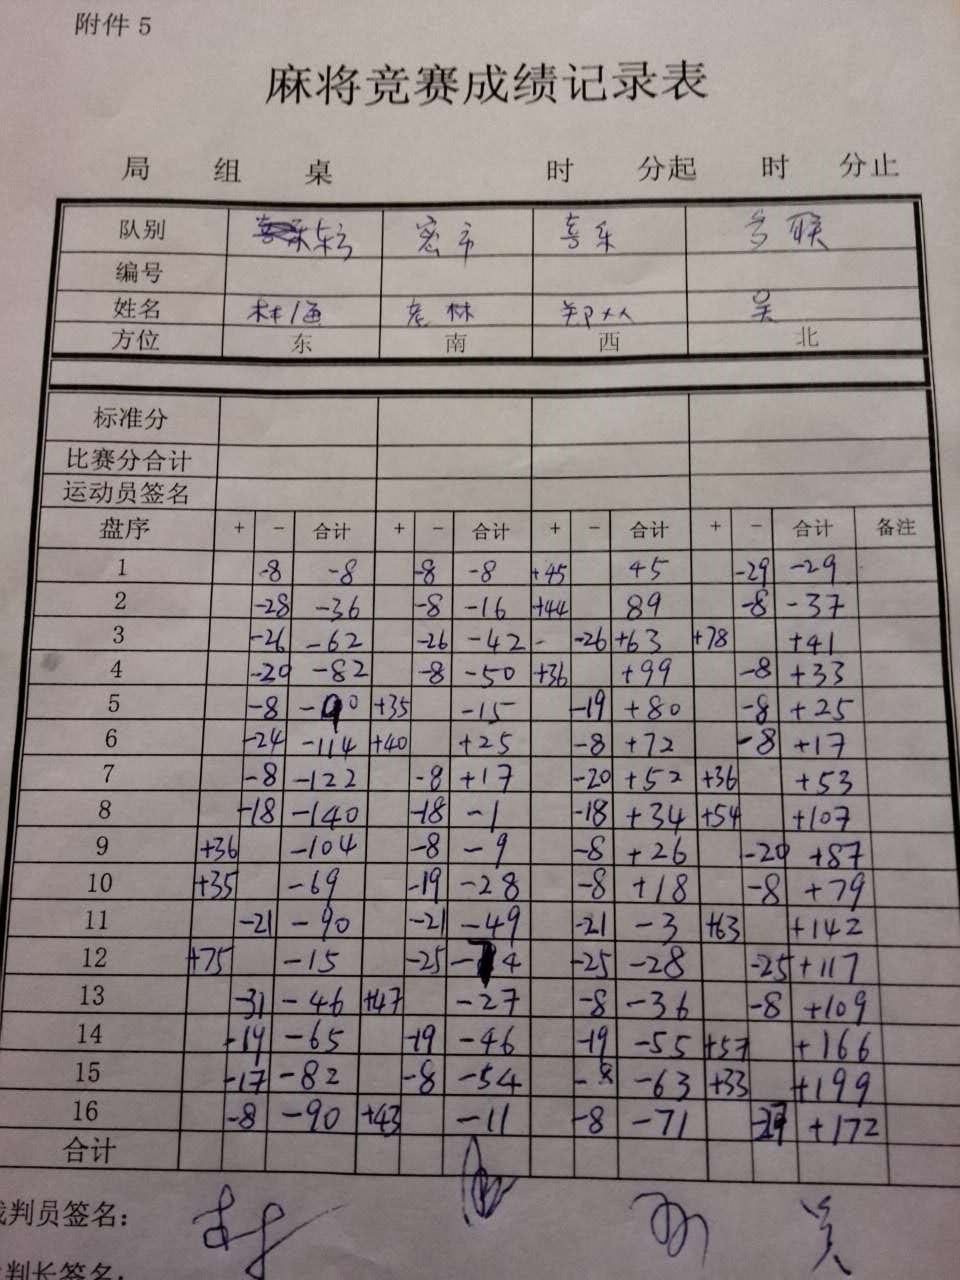 附件 5
麻将竞赛成绩记录表
局 组 桌 时 分起 时 分止
队别 喜乐
编号
姓名 林
方位 东 南 西 北
标准分
比赛分合计
运动员签名
盘序 + - 合计 + - 合计 + - 合计 + - 合计 备注
1 -8 -8 -8 -8 +45 45 -29 -29
2 -28 -36 -8 -16 +44 89 -8 -37
3 -26 -62 -26 -42 - -26 +63 +78 +41
4 -20 -82 -8 -50 +36 +99 -8 +33
5 -8 -90 +35 -15 -19 +80 -8 +25
6 -24 -114 +40 +25 -8 +72 -8 +17
7 -8 -122 -8 +17 -20 +52 +36 +53
8 -18 -140 -18 -1 -18 +34 +54 +107
9 +36 -104 -8 -9 -8 +26 -20 +87
10 +35 -69 -19 -28 -8 +18 -8 +79
11 -21 -90 -21 -49 -21 -3 +63 +142
12 +75 -15 -25 -74 -25 -28 -25 +117
13 -31 -46 +47 -27 -8 -36 -8 +109
14 -19 -65 -19 -46 -19 -55 +57 +166
15 -17 -82 -8 -54 -8 -63 +33 +199
16 -8 -90 +43 -11 -8 -71 -27 +172
合计
裁判员签名：
判长签名：